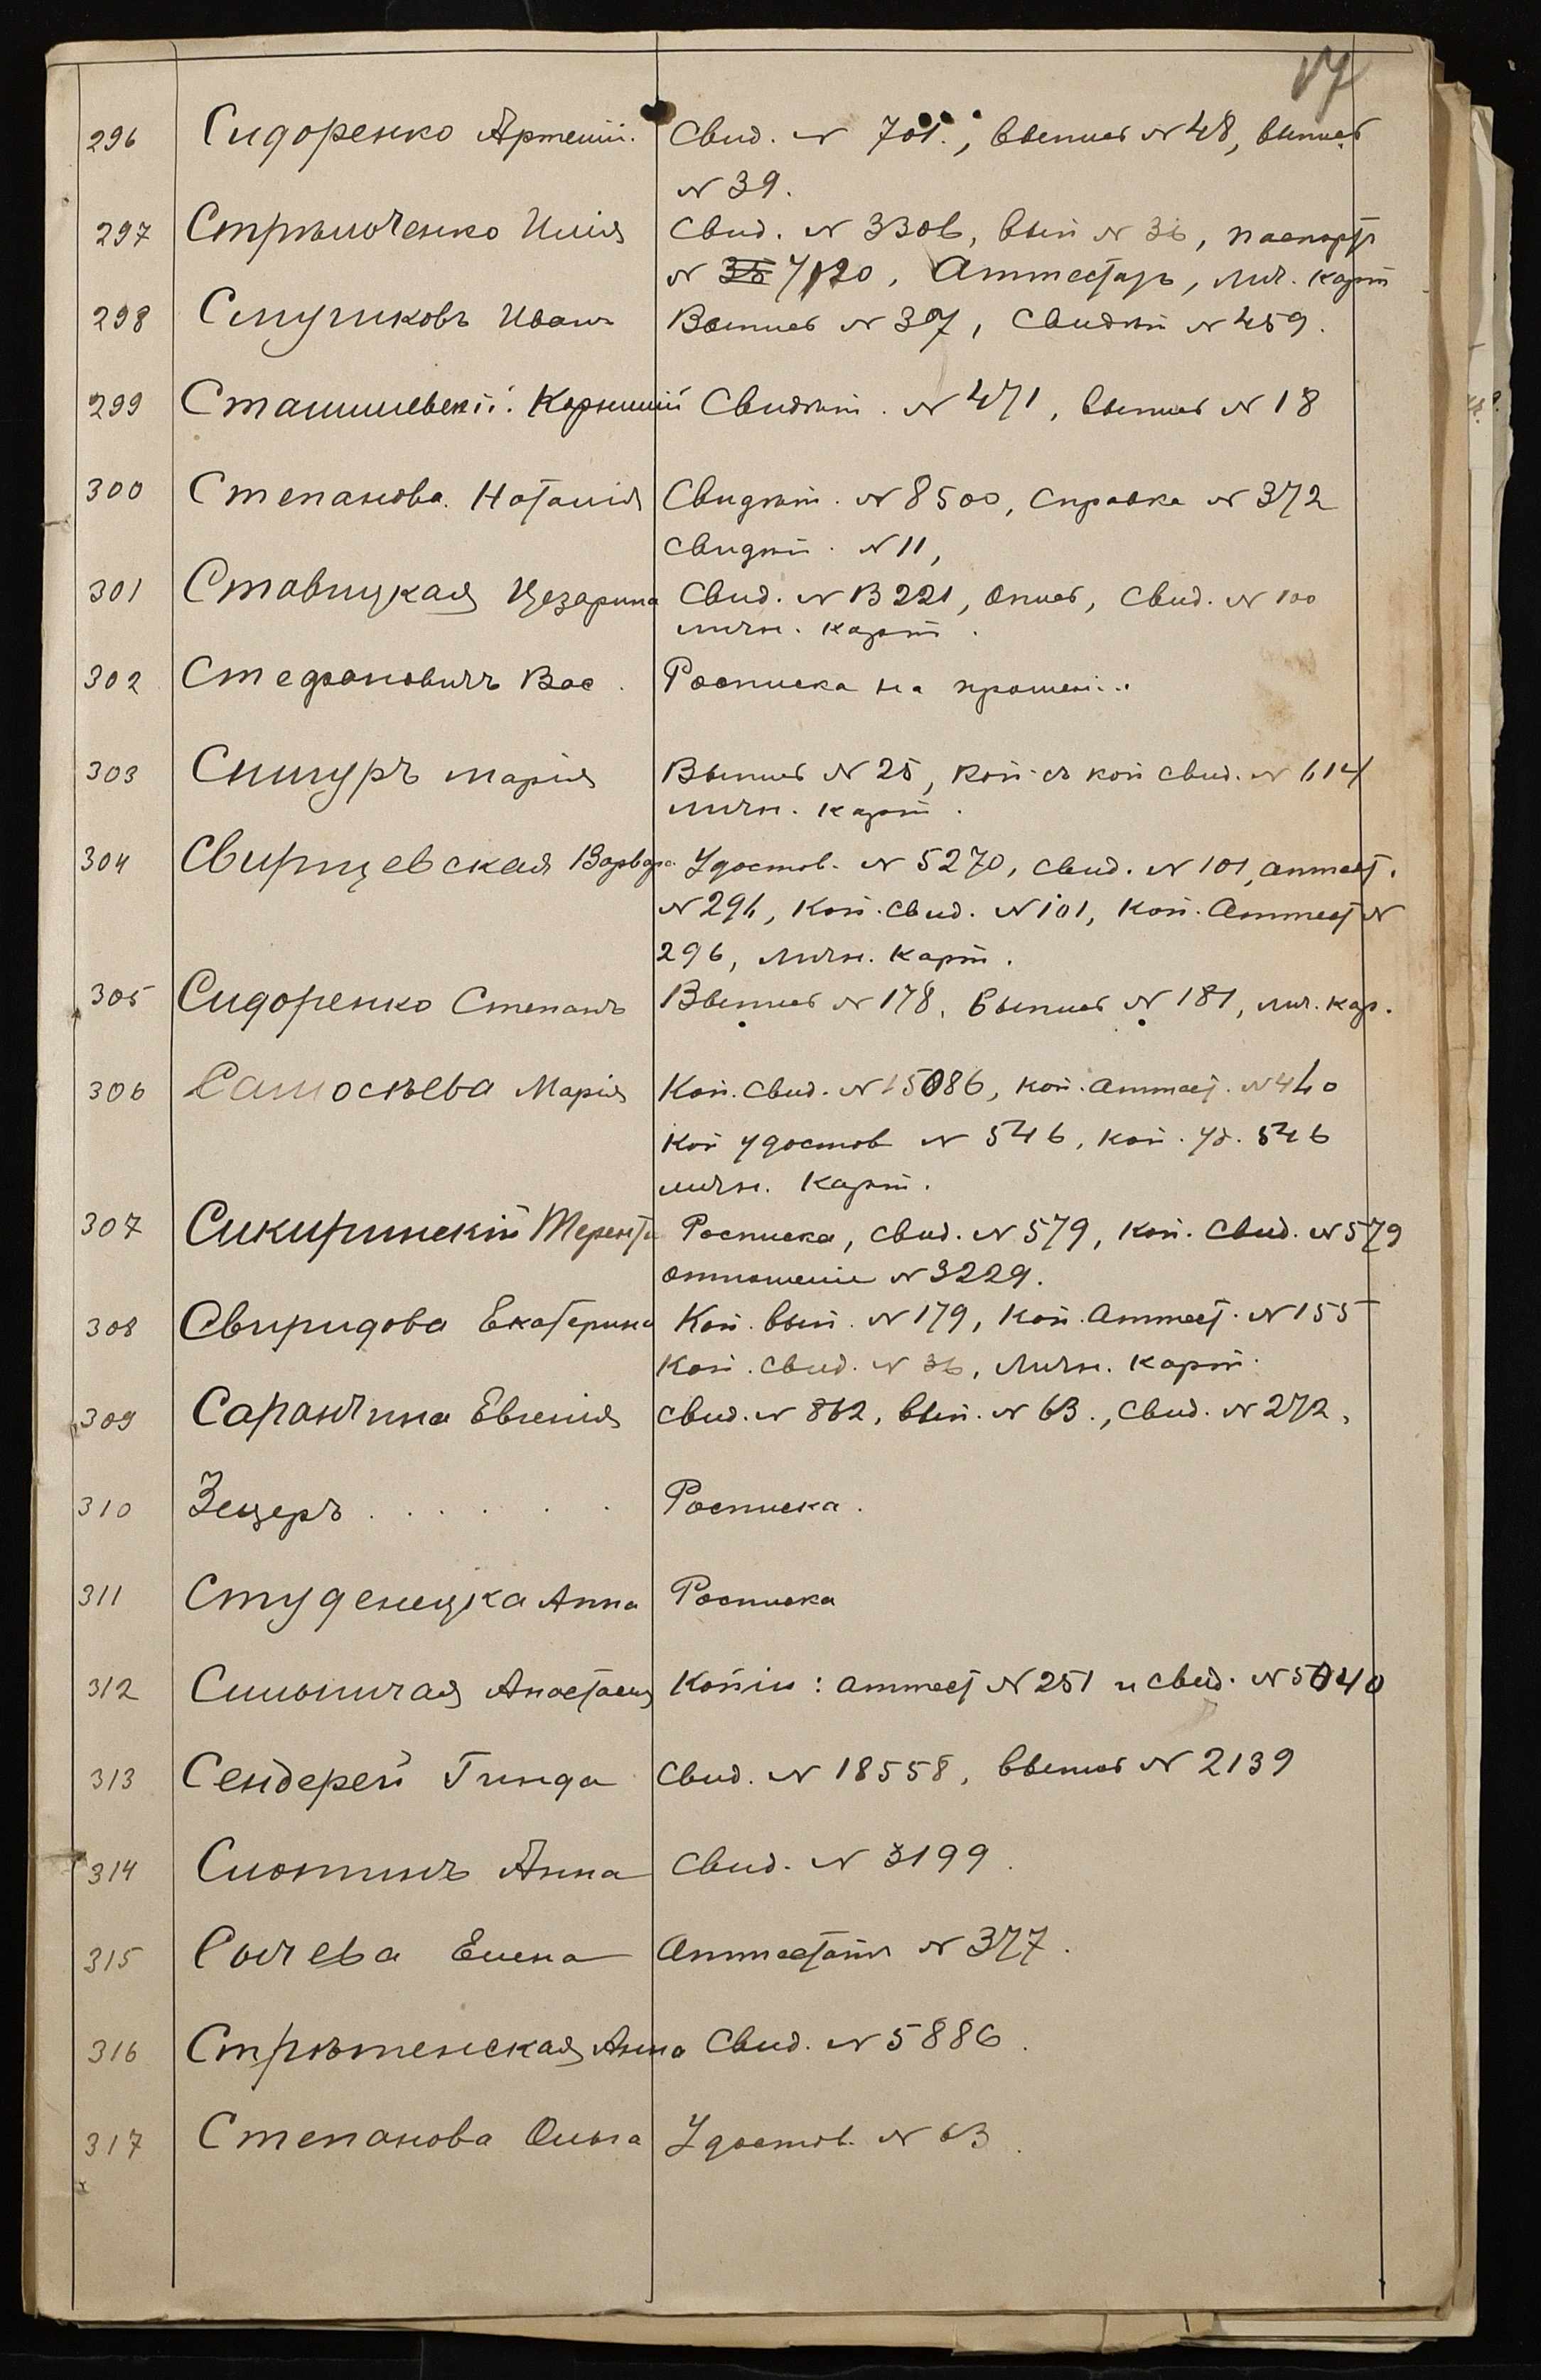 17
296 Сидоренко Артемій. Свид. № 701., выпись № 48, выпись
№ 39.
297 Стрѣльченко Илія Свид. № 3306, вып № 36, паспортъ
№ 7120, Аттестатъ, лич. карт
298 Ступиковъ Иванъ Выпись № 37, Свидѣт № 459.
299 Сташилевскій. Корнилій Свидѣт. № 471, выпись № 18
300 Степанова. Наталія Свидѣт. № 8500, справка № 372
свидѣт. № 11,
301 Ставицкая Цезарина Свид. № В 221, опись, свид. № 100
личн. карт.
302 Стефановичъ Вас. Росписка на прошеніи
303 Снигуръ Марія Выпись № 25, коп съ коп свид. № 614
личн. карт.
304 Свирщевская Варвара Удостов. № 5270, свид. № 101, аттест.
№ 296, коп. свид. № 101, коп. Аттест №
296, личн. карт.
305 Сидоренко Степанъ Выпись № 178, выпись № 181, лич. кар.
306 Самосѣева Марія Коп. свид. № 15086, коп. аттест. № 440
коп удостов № 546, коп. уд. 546
личн. карт.
307 Сикиринскій Терентій Росписка, свид. № 579, коп. свид. № 579
отношеніе № 3229.
308 Свиридова Екатерина Коп. вып. № 179, коп. аттест. № 155
коп. свид. № 36, личн. карт.
309 Саранчина Евгенія свид. № 862, вып. № 63., свид. № 272,
310 Зецеръ . . . . . . Росписка.
311 Студенецка Анна Росписка
312 Анастасія Копіи: аттест № 251 и свид. № 5040
313 Сендерей Гинда свид. № 18558, выпись № 2139
314 Анна свид. № 3199.
315 Сычева Елена Аттестатъ № 377.
316 Стрѣтенская Анна Свид. № 5886.
317 Степанова Ольга Удостов. № 63.